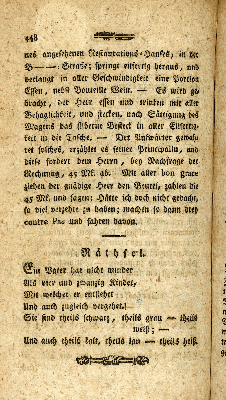 448
nes angesehenen Restaurations-Hauses, in der
B——: Straße; springt eilfertig heraus, und
verlangt in aller Geschwindigkeit eine Portion
Essen, nebst Bouteille Wein. — Es wird ge-
bracht, der Herr essen und trinken mit aller
Behaglichkeit, und stecken, nach Sättigung des
Magens das silberne Besteck in aller Eilfertig-
keit in die Tasche. — Der Aufwärter gewah-
ret solches, erzählet es seiner Principalin, und
diese fordert dem Herrn, bey Nachfrage der
Rechnung, 45 Mk. ab. Mit aller bon grace
ziehen der gnädige Herr den Beutel, zahlen die
45 Mk. und sagen: Hätte ich doch nicht gedacht,
so viel verzehrt zu haben; machen so dann drey
contre Pas und fahren davon.
Räthsel.
Ein Vater hat nicht minder
Als vier und zwanzig Kinder,
Mit welcher er entstehet
Und auch zugleich vergehet!
Sie sind theils schwarz, theils grau — theils
weiß; —
Und auch theils kalt, theils lau — theils heiß.